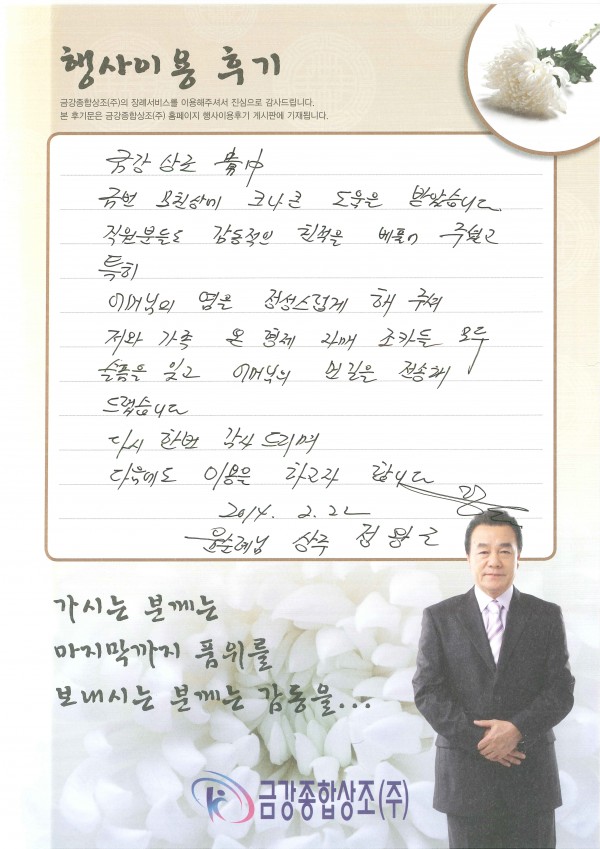 행사이용 후기
금강종합상조(주)의 장례서비스를 이용해주셔서 진심으로 감사드립니다.
본 후기문은 금강종합상조(주) 홈페이지 행사이용후기 게시판에 기재됩니다.
금강 상조 貴中
금번 모친상에 크나큰 도움을 받았습니다.
직원분들도 감동적인 친절을 베풀어 주셨고
특히
어머님의 염을 정성스럽게 해 주셔
저와 가족 온 형제 자매 조카들 모두
슬픔을 잊고 어머님의 먼길을 전송해
드렸습니다
다시 한번 감사 드리며
다음에도 이용을 하고자 합니다
2014. 2. 22
윤순례님 상주 정왕근
가시는 분께는
마지막까지 품위를
보내시는 분께는 감동을...
금강종합상조(주)